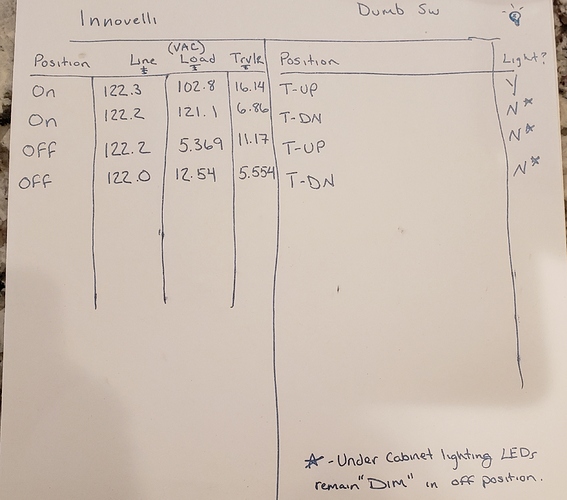 Innovelli Dumb Sw
(VAC)
Position Line Load Trvlr Position Light?
On 122.3 102.8 16.14 T-UP Y
On 122.2 121.1 6.86 T-DN N*
OFF 122.2 5.369 11.17 T-UP N*
OFF 122.0 12.54 5.554 T-DN N*
* - Under Cabinet lighting LEDs
remain "DIM" in off position.